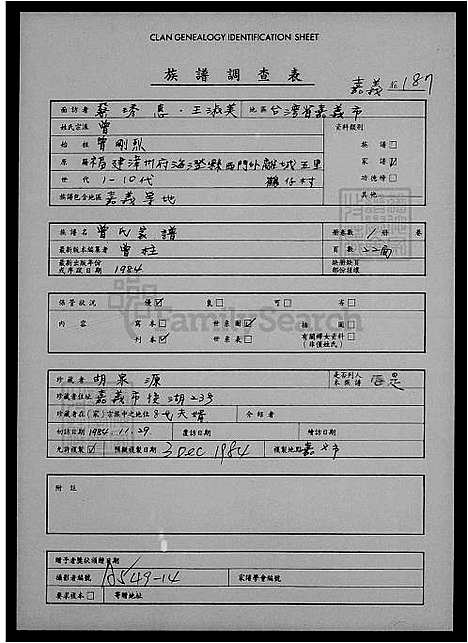 CLAN GENEALOGY IDENTIFICATION SHEET
族譜調查表
嘉義 187
面訪者 蔡 惠．王淑美 地區 台灣省嘉義市
姓氏宗派 曾 資料類別
始祖 曾剛烈 族譜□
原籍 福建漳州府海澄縣西門外離城五里 家譜☑
世代 1-10代 鶴仔村 功德榜□
族譜包含地區 嘉義等地 其他
族譜名 曾氏家譜 冊卷數 1 冊 卷
最新版本編纂者 曾柱 頁數 22面
最新出版年份或序跋日期 1984 缺册缺頁部份狀樣
保管狀況 優☑ 良□ 可□ 劣□
內容 寫本□ 世系圖☑ 插圖□
刊本☑ 世系表□ 有關婦女資料(非僅姓氏)□
FamilySearch
珍藏者 胡泉源 是否列入本族譜 否是
珍藏者住址 嘉義市後湖23号
珍藏者在(家)宗族中之地位 8代天婿 介紹者
初訪日期 1984.11.29. 覆訪日期 續訪日期
允許複製☑ 預擬複製日期 3 Dec 1984 複製地點 嘉义市
附註
贈予者獎狀頒贈日期
攝影者編號 A549-14 家譜學會編號
要求複本□ 寄贈地址